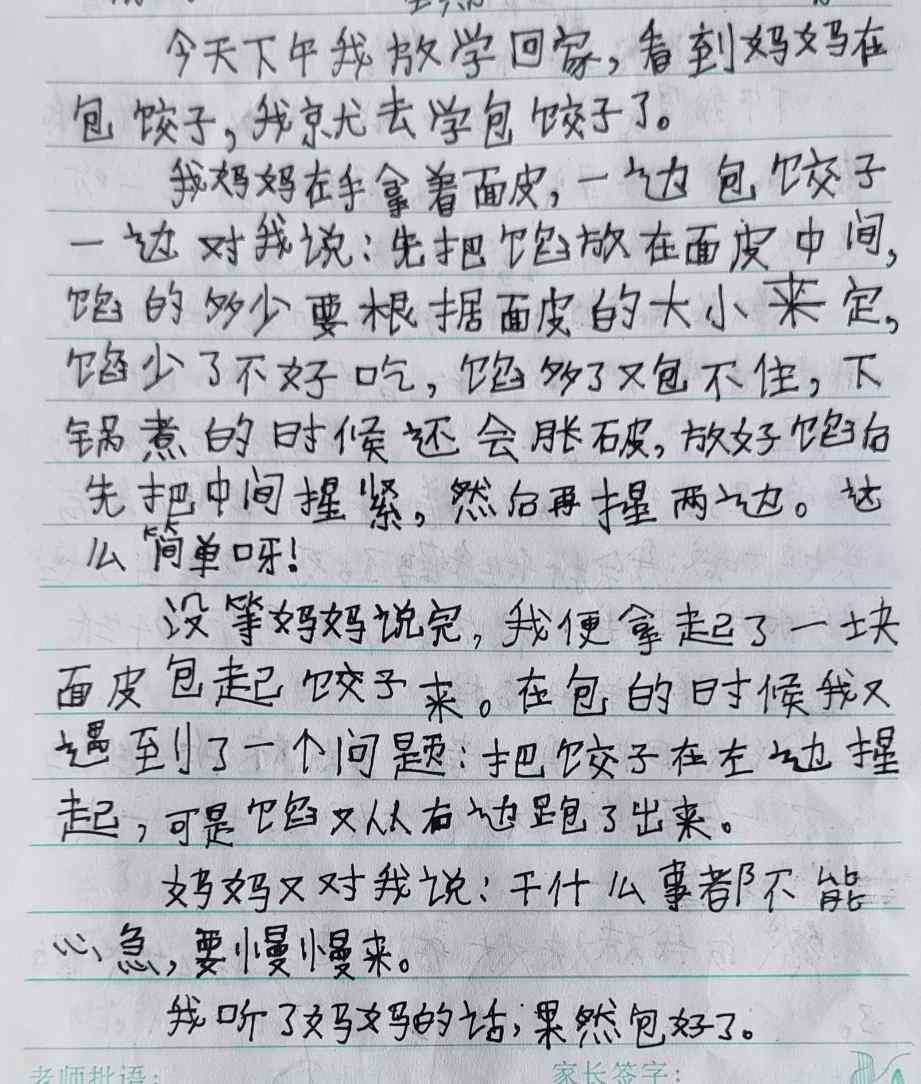 今天下午我放学回家,看到妈妈在
包饺子,我就去学包饺子了。
我妈妈在手拿着面皮,一边包饺子
一边对我说:先把馅放在面皮中间,
馅的多少要根据面皮的大小来定,
馅少了不好吃,馅多了又包不住,下
锅煮的时候还会胀破,放好馅后
先把中间捏紧,然后再捏两边。这
么简单呀!
没等妈妈说完,我便拿起了一块
面皮包起饺子来。在包的时候我又
遇到了一个问题:把饺子在左边捏
起,可是馅又从右边跑了出来。
妈妈又对我说:干什么事都不能
心急,要慢慢来。
我听了妈妈的话,果然包好了。
老师批语: 家长签字: